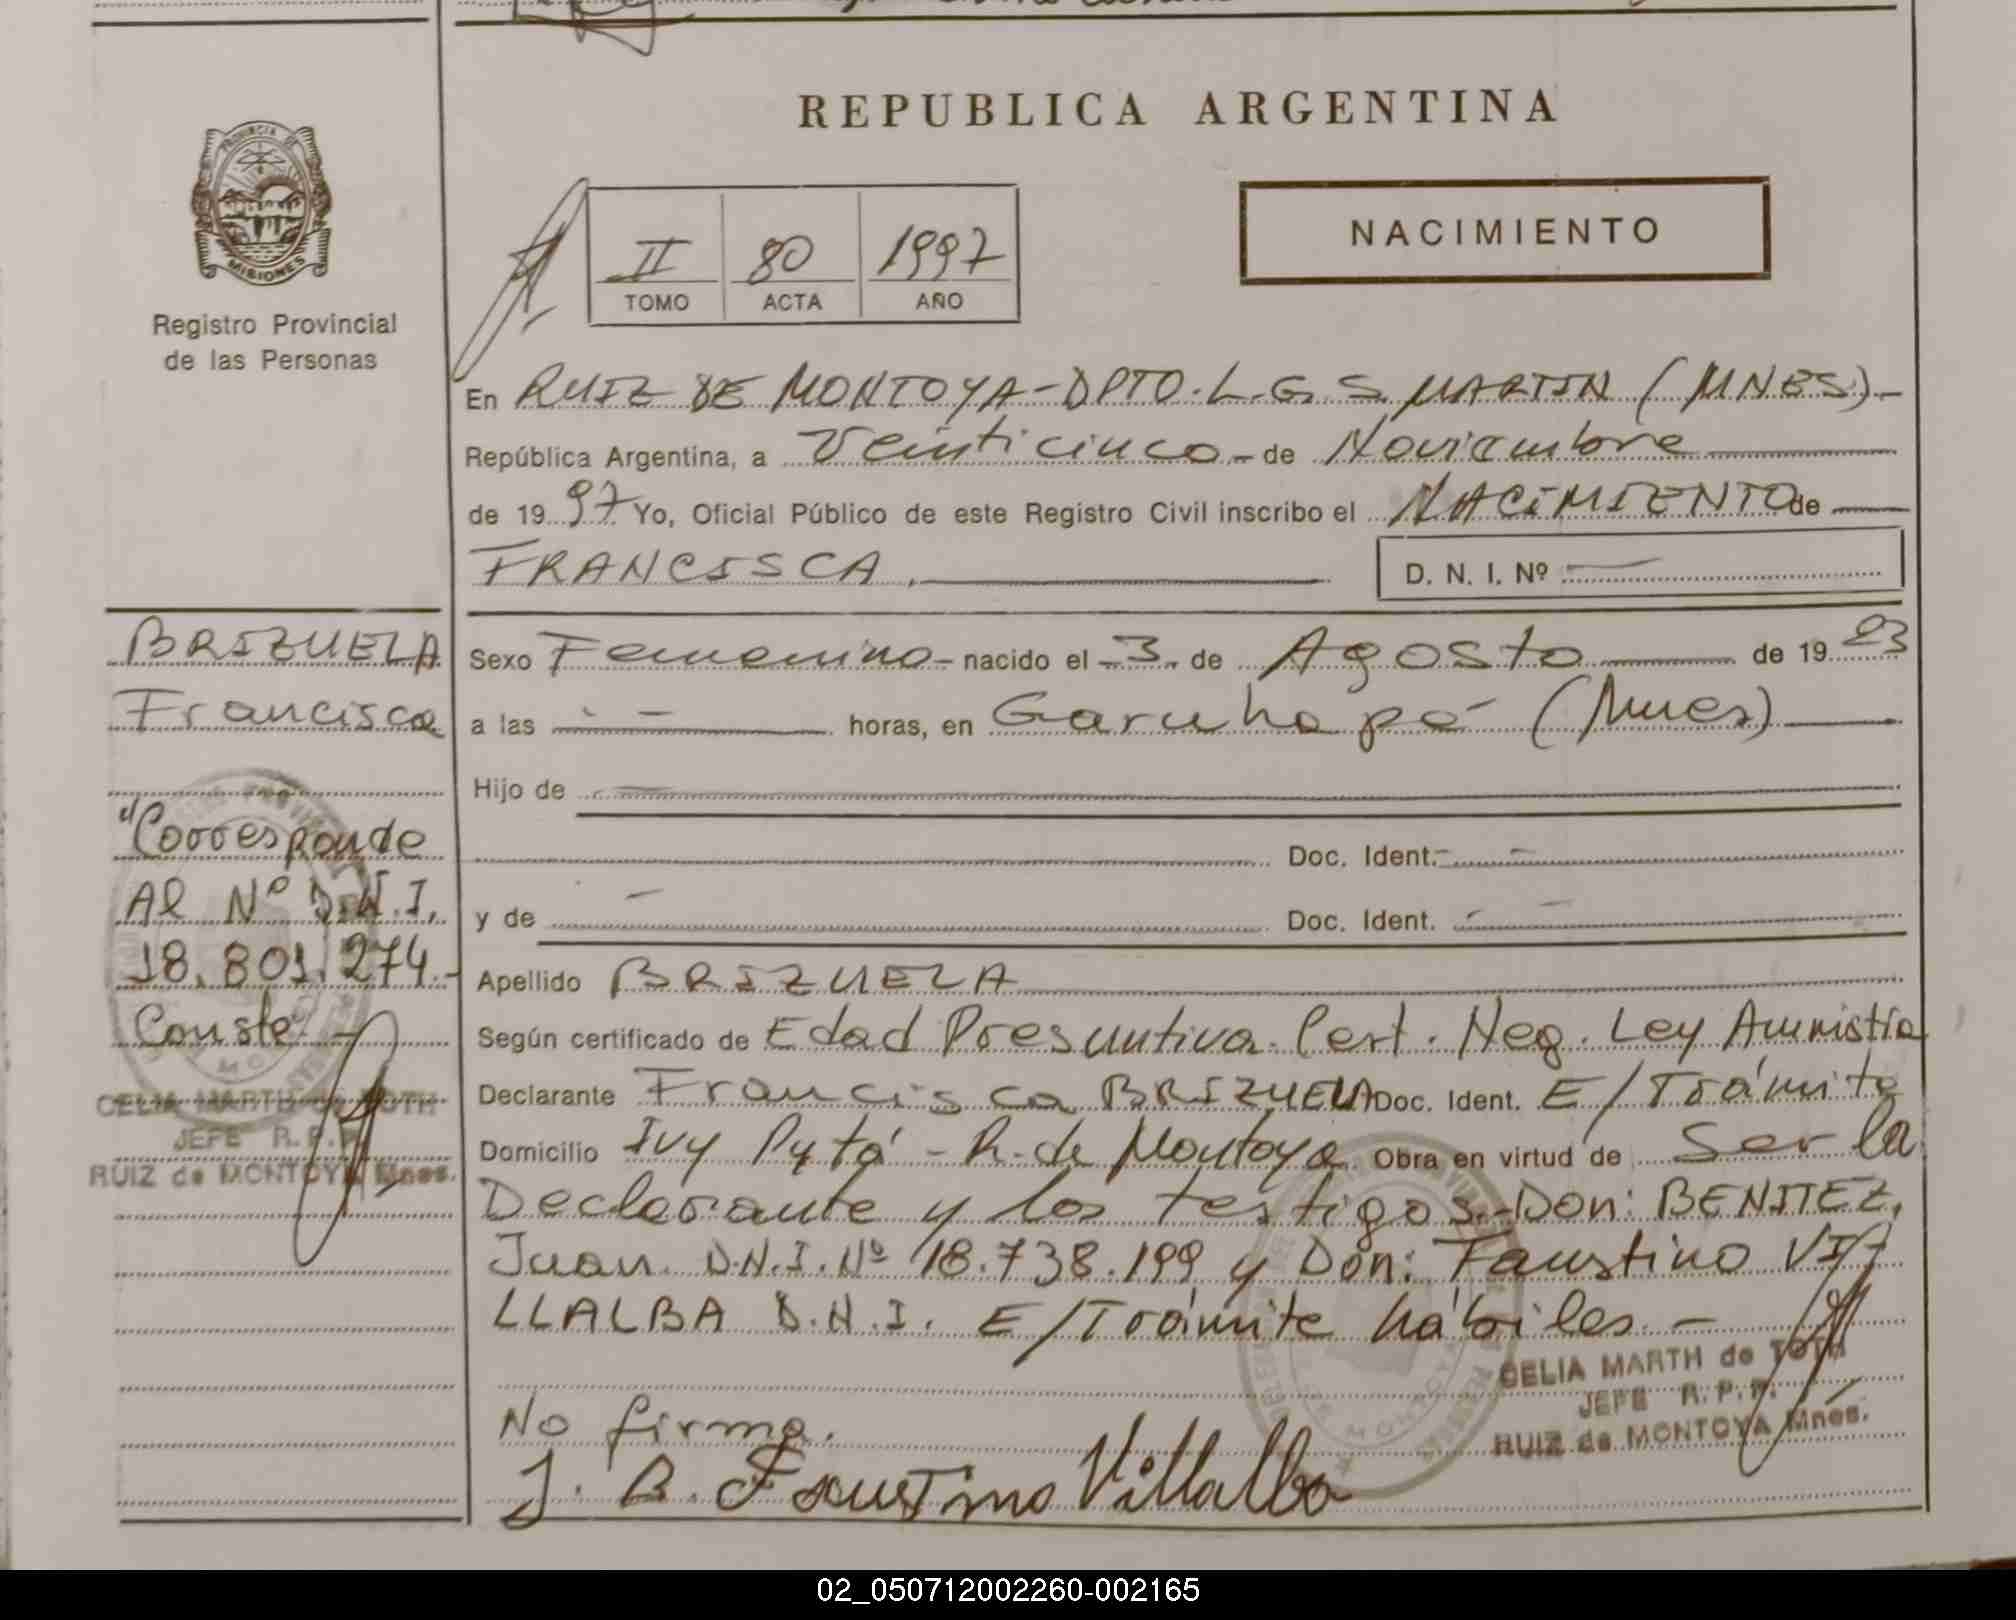 REPUBLICA ARGENTINA
PROVINCIA DE
MISIONES
Registro Provincial
de las Personas
II 80 1997
TOMO ACTA AÑO
NACIMIENTO
En RUIZ DE MONTOYA-DPTO. L.G. S. MARTIN (MNES).-
República Argentina, a Veinticinco - de Noviembre
de 1997 Yo, Oficial Público de este Registro Civil inscribo el NACIMIENTO de
FRANCISCA.
D. N. I. Nº -
BRIZUELA
Francisca
"Corresponde
Al Nº D.N.I.
18.801.274.-
Conste -
CELIA MARTH de TOTH
JEFE R.P.P.
RUIZ de MONTOYA Mnes.
Sexo Femenino - nacido el 3 de Agosto de 19 23
a las - horas, en Garuhapá (Mnes)
Hijo de -
Doc. Ident. -
y de - Doc. Ident. -
Apellido BRIZUELA
Según certificado de Edad Presuntiva. Cert. Neg. Ley Amnistía
Declarante Francisca BRIZUELA Doc. Ident. E/Trámite
Domicilio Ivy Pytá - R. de Montoya Obra en virtud de Ser la
Declarante y los testigos.-Don: BENITEZ,
Juan D.N.I. Nº 18.738.199 y Don: Faustino VI
LLALBA D.N.I. E/Trámite hábiles. -
CELIA MARTH de TOTH
JEFE R.P.P.
RUIZ de MONTOYA Mnes.
No firma.
J. B. Faustino Villalba
02_050712002260-002165